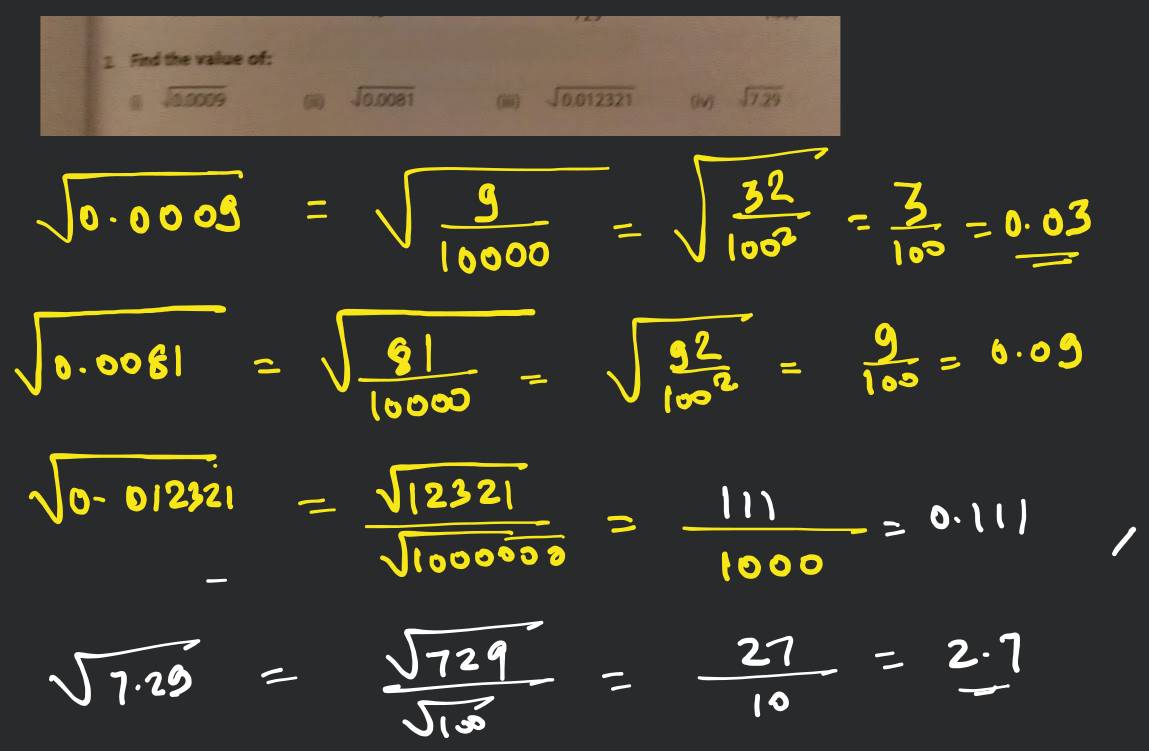 2. Find the value of:
(i) √0.0009 (ii) √0.0081 (iii) √0.012321 (iv) √7.29
√0.0009 = √(9/10000) = √(32/100²) = 3/100 = 0.03
√0.0081 = √(81/10000) = √(92/100²) = 9/100 = 0.09
√0-012321 = √12321/√1000000 = 111/1000 = 0.111
√7.29 = √729/√100 = 27/10 = 2.7